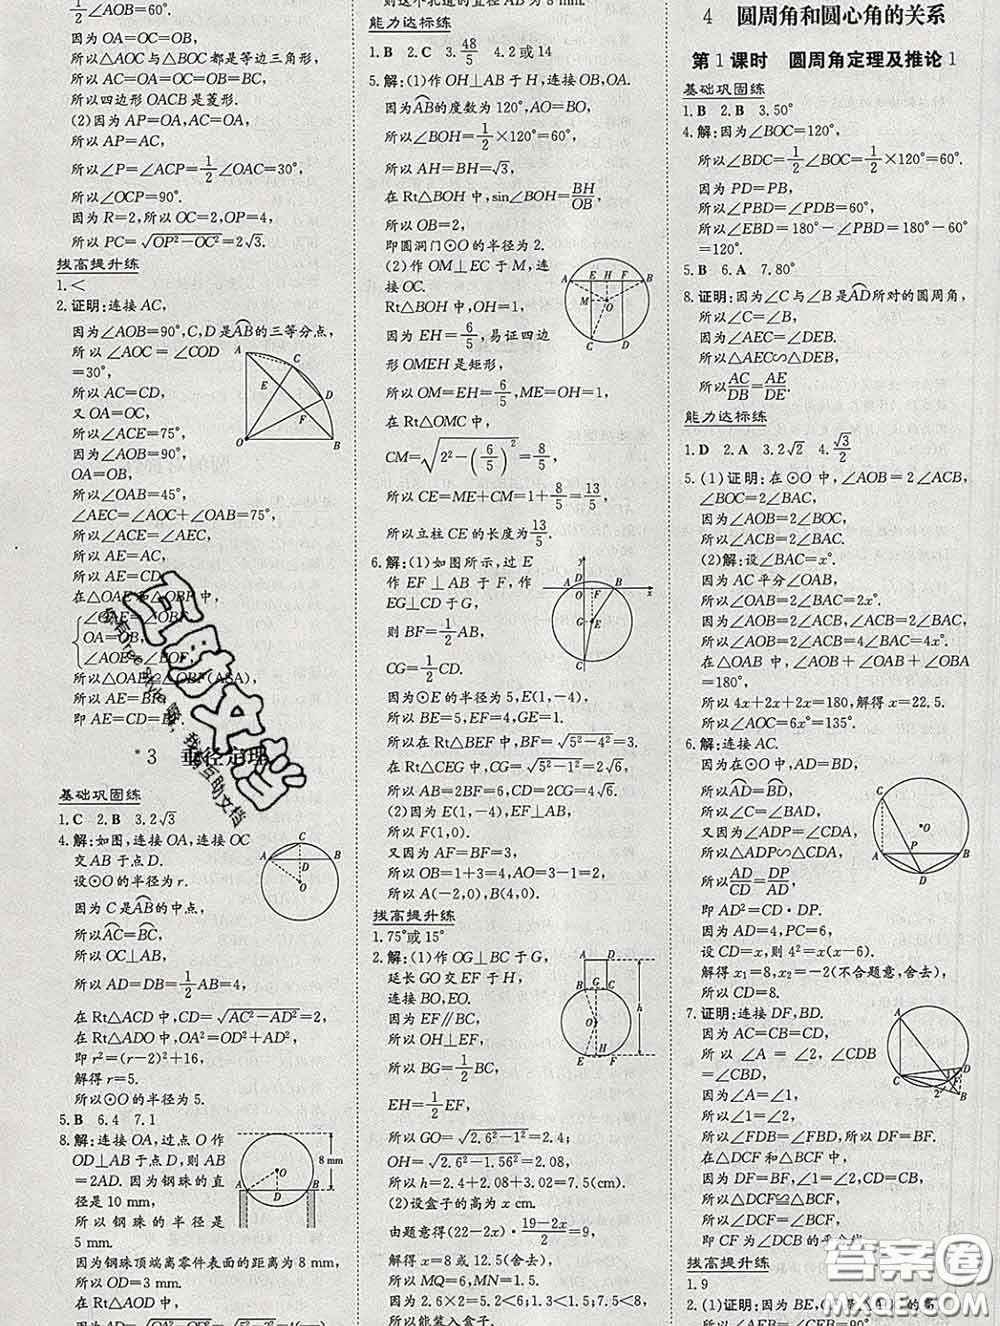 1/2∠AOB=60°.
因为 OA=OC=OB,
所以△AOC 与△BOC 都是等边三角形,
所以四边形 OACB 是菱形.
(2)因为 AP=OA,AC=OA,
所以 AP=AC,
所以∠P=∠ACP=1/2∠OAC=30°,
所以∠OCP=90°.
因为 R=2,所以 OC=2,OP=4,
所以 PC=√(OP²-OC²)=2√3.
拔高提升练
1.<
2.证明:连接 AC,
因为∠AOB=90°,C,D 是AB的三等分点,
所以∠AOC=∠COD
=30°,
所以 AC=CD,
又 OA=OC,
所以∠ACE=75°,
OA=OB,
所以∠OAB=45°,
∠AEC=∠AOC+∠OAB=75°,
所以∠ACE=∠AEC,
所以 AE=AC,
所以 AE=CD
在△OAE
∠OAE=∠OBF,
OA=OB,
所以△OAE≌△OBF(ASA),
所以 AE=BF
即 AE=CD=BF
*3 垂径定理
基础巩固练
1.C 2.B 3.2√3
4.解:如图,连接 OA,连接 OC
交 AB 于点 D.
设⊙O 的半径为 r.
因为 C 是AB的中点,
所以AC=BC,
所以 OC⊥AB,
所以 AD=DB=1/2AB=4,
在 Rt△ACD 中,CD=√(AC²-AD²)=2,
在 Rt△ADO 中,OA²=OD²+AD²,
即 r²=(r-2)²+16,
解得 r=5.
所以⊙O 的半径为 5.
5.B 6.4 7.1
8.解:连接 OA,过点 O 作
OD⊥AB 于点 D,则 AB
=2AD. 因为钢珠的直
径是 10 mm,
所以钢珠的半径是
5 mm.
因为钢珠顶端离零件表面的距离为 8 mm,
所以 OD=3 mm.
在 Rt△AOD 中,
则这个孔道的直径 AB 为 8 mm.
能力达标练
1.B 2.C 3.48/5 4.2 或 14
5.解:(1)作 OH⊥AB 于 H,连接 OB,OA.
因为AB的度数为 120°,AO=BO,
所以∠BOH=1/2×120°=60°,
所以 AH=BH=√3,
在 Rt△BOH 中,sin∠BOH=BH/OB,
所以 OB=2,
即圆洞门⊙O 的半径为 2.
(2)作 OM⊥EC 于 M,连
接 OC.
Rt△BOH 中,OH=1,
因为 EH=6/5,易证四边
形 OMEH 是矩形,
所以 OM=EH=6/5,ME=OH=1,
在 Rt△OMC 中,
CM=√(2²-(6/5)²)=8/5,
所以 CE=ME+CM=1+8/5=13/5,
所以立柱 CE 的长度为13/5.
6.解:(1)如图所示,过 E
作 EF⊥AB 于 F,作
EG⊥CD 于 G,
则 BF=1/2AB,
CG=1/2CD.
因为⊙E 的半径为 5,E(1,-4),
所以 BE=5,EF=4,GE=1.
所以在 Rt△BEF 中,BF=√(5²-4²)=3.
CG=√(5²-1²)=2√6.
所以 AB=2BF=6,CD=2CG=4√6.
(2)因为 E(1,-4),
所以 F(1,0).
又因为 AF=BF=3,
所以 OB=1+3=4,AO=3-1=2,
所以 A(-2,0),B(4,0).
拔高提升练
1.75°或 15°
2.解:(1)作 OG⊥BC 于 G,
延长 GO 交 EF 于 H,
连接 BO,EO.
因为 EF∥BC,
所以 OH⊥EF,
所以 BG=1/2BC,
EH=1/2EF,
所以 GO=√(2.6²-1²)=2.4,
OH=√(2.6²-1.56²)=2.08,
所以 h=2.4+2.08+3.02=7.5(cm).
(2)设盒子的高为 x cm.
由题意得(22-2x)·(19-2x)/2=9,
解得 x=6 或 12.5(舍去),
所以 MQ=6,MN=1.5,
因为 2.6×2=5.2<6;1.3<1.5;7.5<
所以能装入盒子.
4 圆周角和圆心角的关系
第 1 课时 圆周角定理及推论 1
基础巩固练
1.B 2.B 3.50°
4.解:因为∠BOC=120°,
所以∠BDC=1/2∠BOC=1/2×120°=60°.
因为 PD=PB,
所以∠PBD=∠PDB=60°,
所以∠EBD=180°-∠PBD=180°-60°
=120°.
5.B 6.A 7.80°
8.证明:因为∠C 与∠B 是AD所对的圆周角,
所以∠C=∠B.
因为∠AEC=∠DEB,
所以△AEC∽△DEB,
所以AC/DB=AE/DE.
能力达标练
1.D 2.A 3.2√2 4.√3/2
5.(1)证明:在⊙O 中,∠AOB=2∠ACB,
∠BOC=2∠BAC,
因为∠AOB=2∠BOC,
所以∠ACB=2∠BAC.
(2)解:设∠BAC=x°.
因为 AC 平分∠OAB,
所以∠OAB=2∠BAC=2x°.
因为∠AOB=2∠ACB,∠ACB=2∠BAC,
所以∠AOB=2∠ACB=4∠BAC=4x°.
在△OAB 中,∠AOB+∠OAB+∠OBA
=180°,
所以 4x+2x+2x=180,解得 x=22.5.
所以∠AOC=6x°=135°.
6.解:连接 AC.
因为在⊙O 中,AD=BD,
所以AD=BD.
所以∠C=∠BAD.
又因为∠ADP=∠CDA,
所以△ADP∽△CDA,
所以AD/CD=DP/AD,
即 AD²=CD·DP.
因为 AD=4,PC=6,
设 CD=x,则 4²=x(x-6).
解得 x₁=8,x₂=-2(不合题意,舍去).
所以 CD=8.
7.证明:连接 DF,BD.
因为 AC=CB=CD,
所以∠A=∠2=
∠CBD,
因为∠A=∠1,
所以∠1=∠2,
所以∠FDB=∠FBD,所以 DF=BF.
在△DCF 与△BCF 中,
因为 DF=BF,∠1=∠2,CD=CB,
所以△DCF≌△BCF,
所以∠DCF=∠BCF,
即 CF 为∠DCB 的平分线.
拔高提升练
1.9
2.(1)证明:因为 BE,